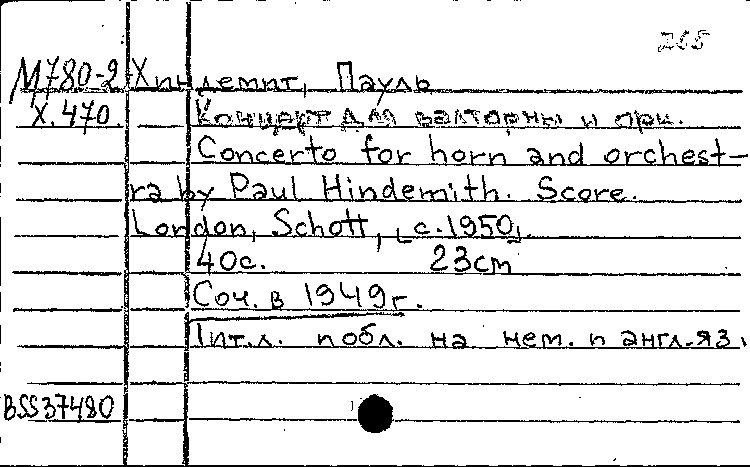 265
М780-2 Хиндемит, Пауль
Х.470. Концерт для валторны и орк.
Concerto for horn and orchest-
ra by Paul Hindemith. Score.
London, Schott, [c.1950].
40с. 23cm
Соч. в 1949г.
Тит.л. побл. на нем. и англ.яз.
BSS37480